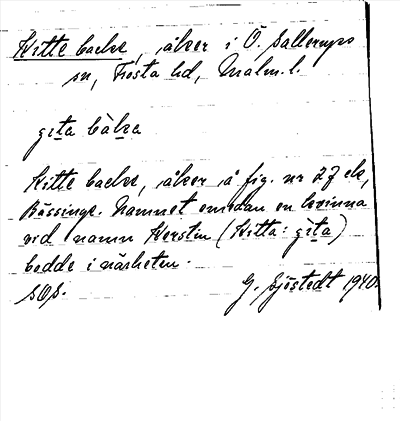 Kitte backe, åker i Ö. Sallerups
sn, Frosta hd, Malm. l.
gita bàka
Kitte backe, åker å fig. nr 27 ek,
Bässinge. Namnet emedan en kvinna
vid namn Kerstin (Kitta: gìta)
bodde i närheten.
SOS. G. Sjöstedt 1940.